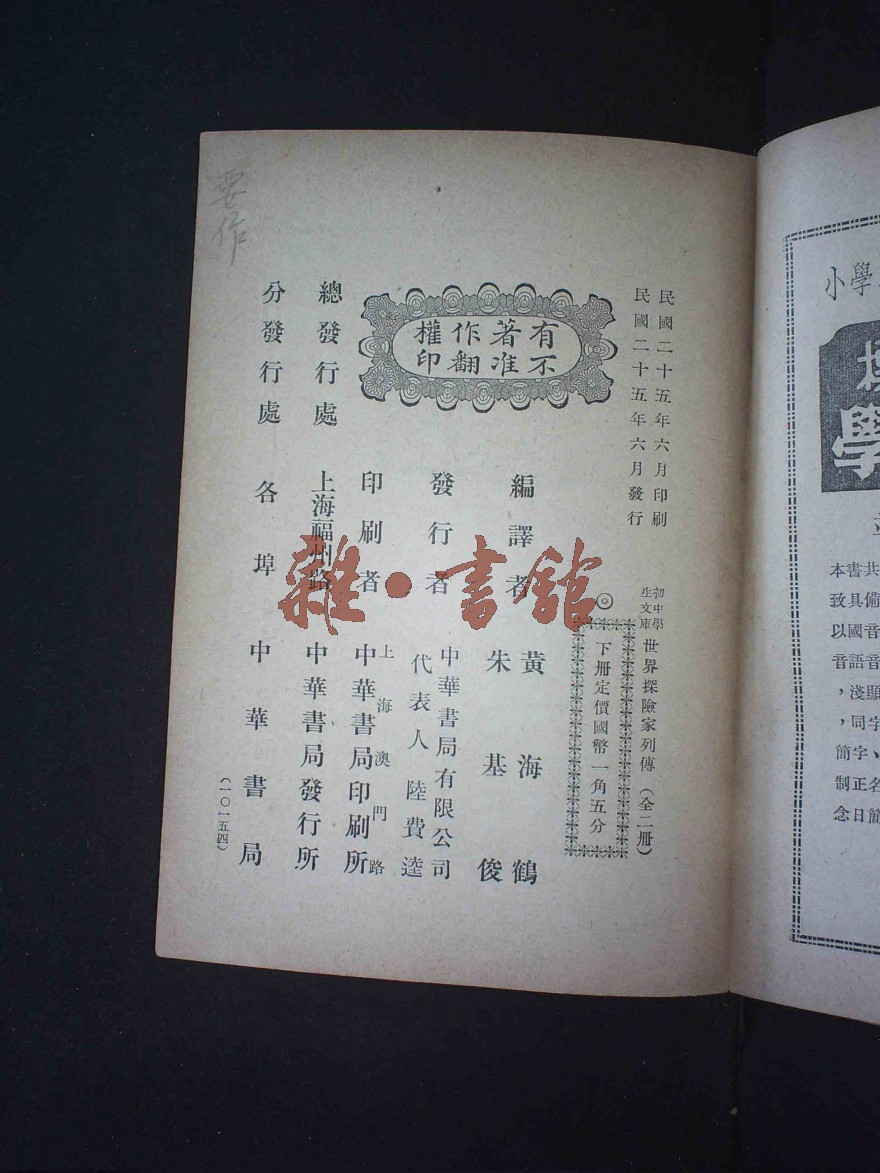 民國二十五年六月印刷
民國二十五年六月發行
初中學生文庫
世界探險家列傳（全二册）
◎下册定價國幣一角五分
有著作權
不准翻印
編譯者
黃海鶴
朱基俊
發行者
中華書局有限公司
代表人陸費逵
印刷者
上海澳門路
中華書局印刷所
總發行處
上海福州路
中華書局發行所
分發行處
各埠
中華書局
（一〇一五四）
要作
雜·書館
小學
學
本書共
致具備
以國音
音語音
，淺顯
，同字
簡、字
制正名
念日簡